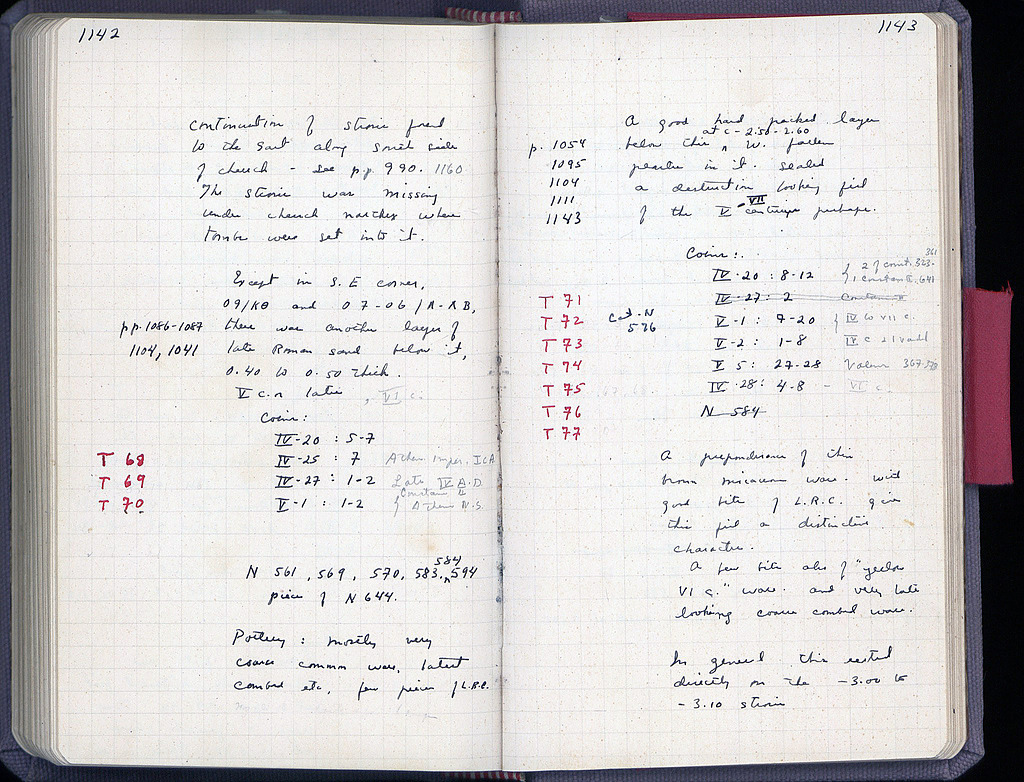 1142
continuation of strosis found
to the East along south side
of church - see pp. 990. 1160
The strosis was missing
under church narthex where
tombs were set into it.
Except in S.E corner,
09/KΘ and 07-06/Λ-ΛB,
pp. 1086-1087 there was another layer of
1104, 1041 late Roman sand below it,
0.40 to 0.50 thick.
V c. or later, VI c.
Coins:
IV-20 : 5-7
T 68 IV-25 : 7 Athen. Imper. I c A
T 69 IV-27 : 1-2 Late IV A.D.
Constans II
T 70 V-1 : 1-2 Athens N.S.
584
N 561, 569, 570, 583, 594
piece of N 644.
Pottery : mostly very
coarse common ware, latest
combed etc, few pieces of L.R.C.
1143
A good hard packed layer
at c - 2.50-2.60
p. 1054 below this W. fallen
1095 in it. sealed
1104 a destruction looking fill
1111 VII
1143 of the V century perhaps.
Coins:
361
IV-20 : 8-12 2 of Const. 323-
1 Constans II. 641
T 71 IV-27 : 2 Constans II
T 72 Cat. N V-1 : 7-20 IV to VII c.
576
T 73 V-2 : 1-8 IV c 2 1 vandl
T 74 V 5 : 27-28 Valens 367-
T 75 IV-28 : 4-8 - VI c.
T 76 N 584
T 77
A preponderance of thin
brown micaceous ware. with
good bits of L.R.C. give
this fill a distinctive
character.
A few bits also of "yellow
VI c." ware. and very late
looking coarse combed ware.
In general this rested
directly on the -3.00 to
-3.10 strosis